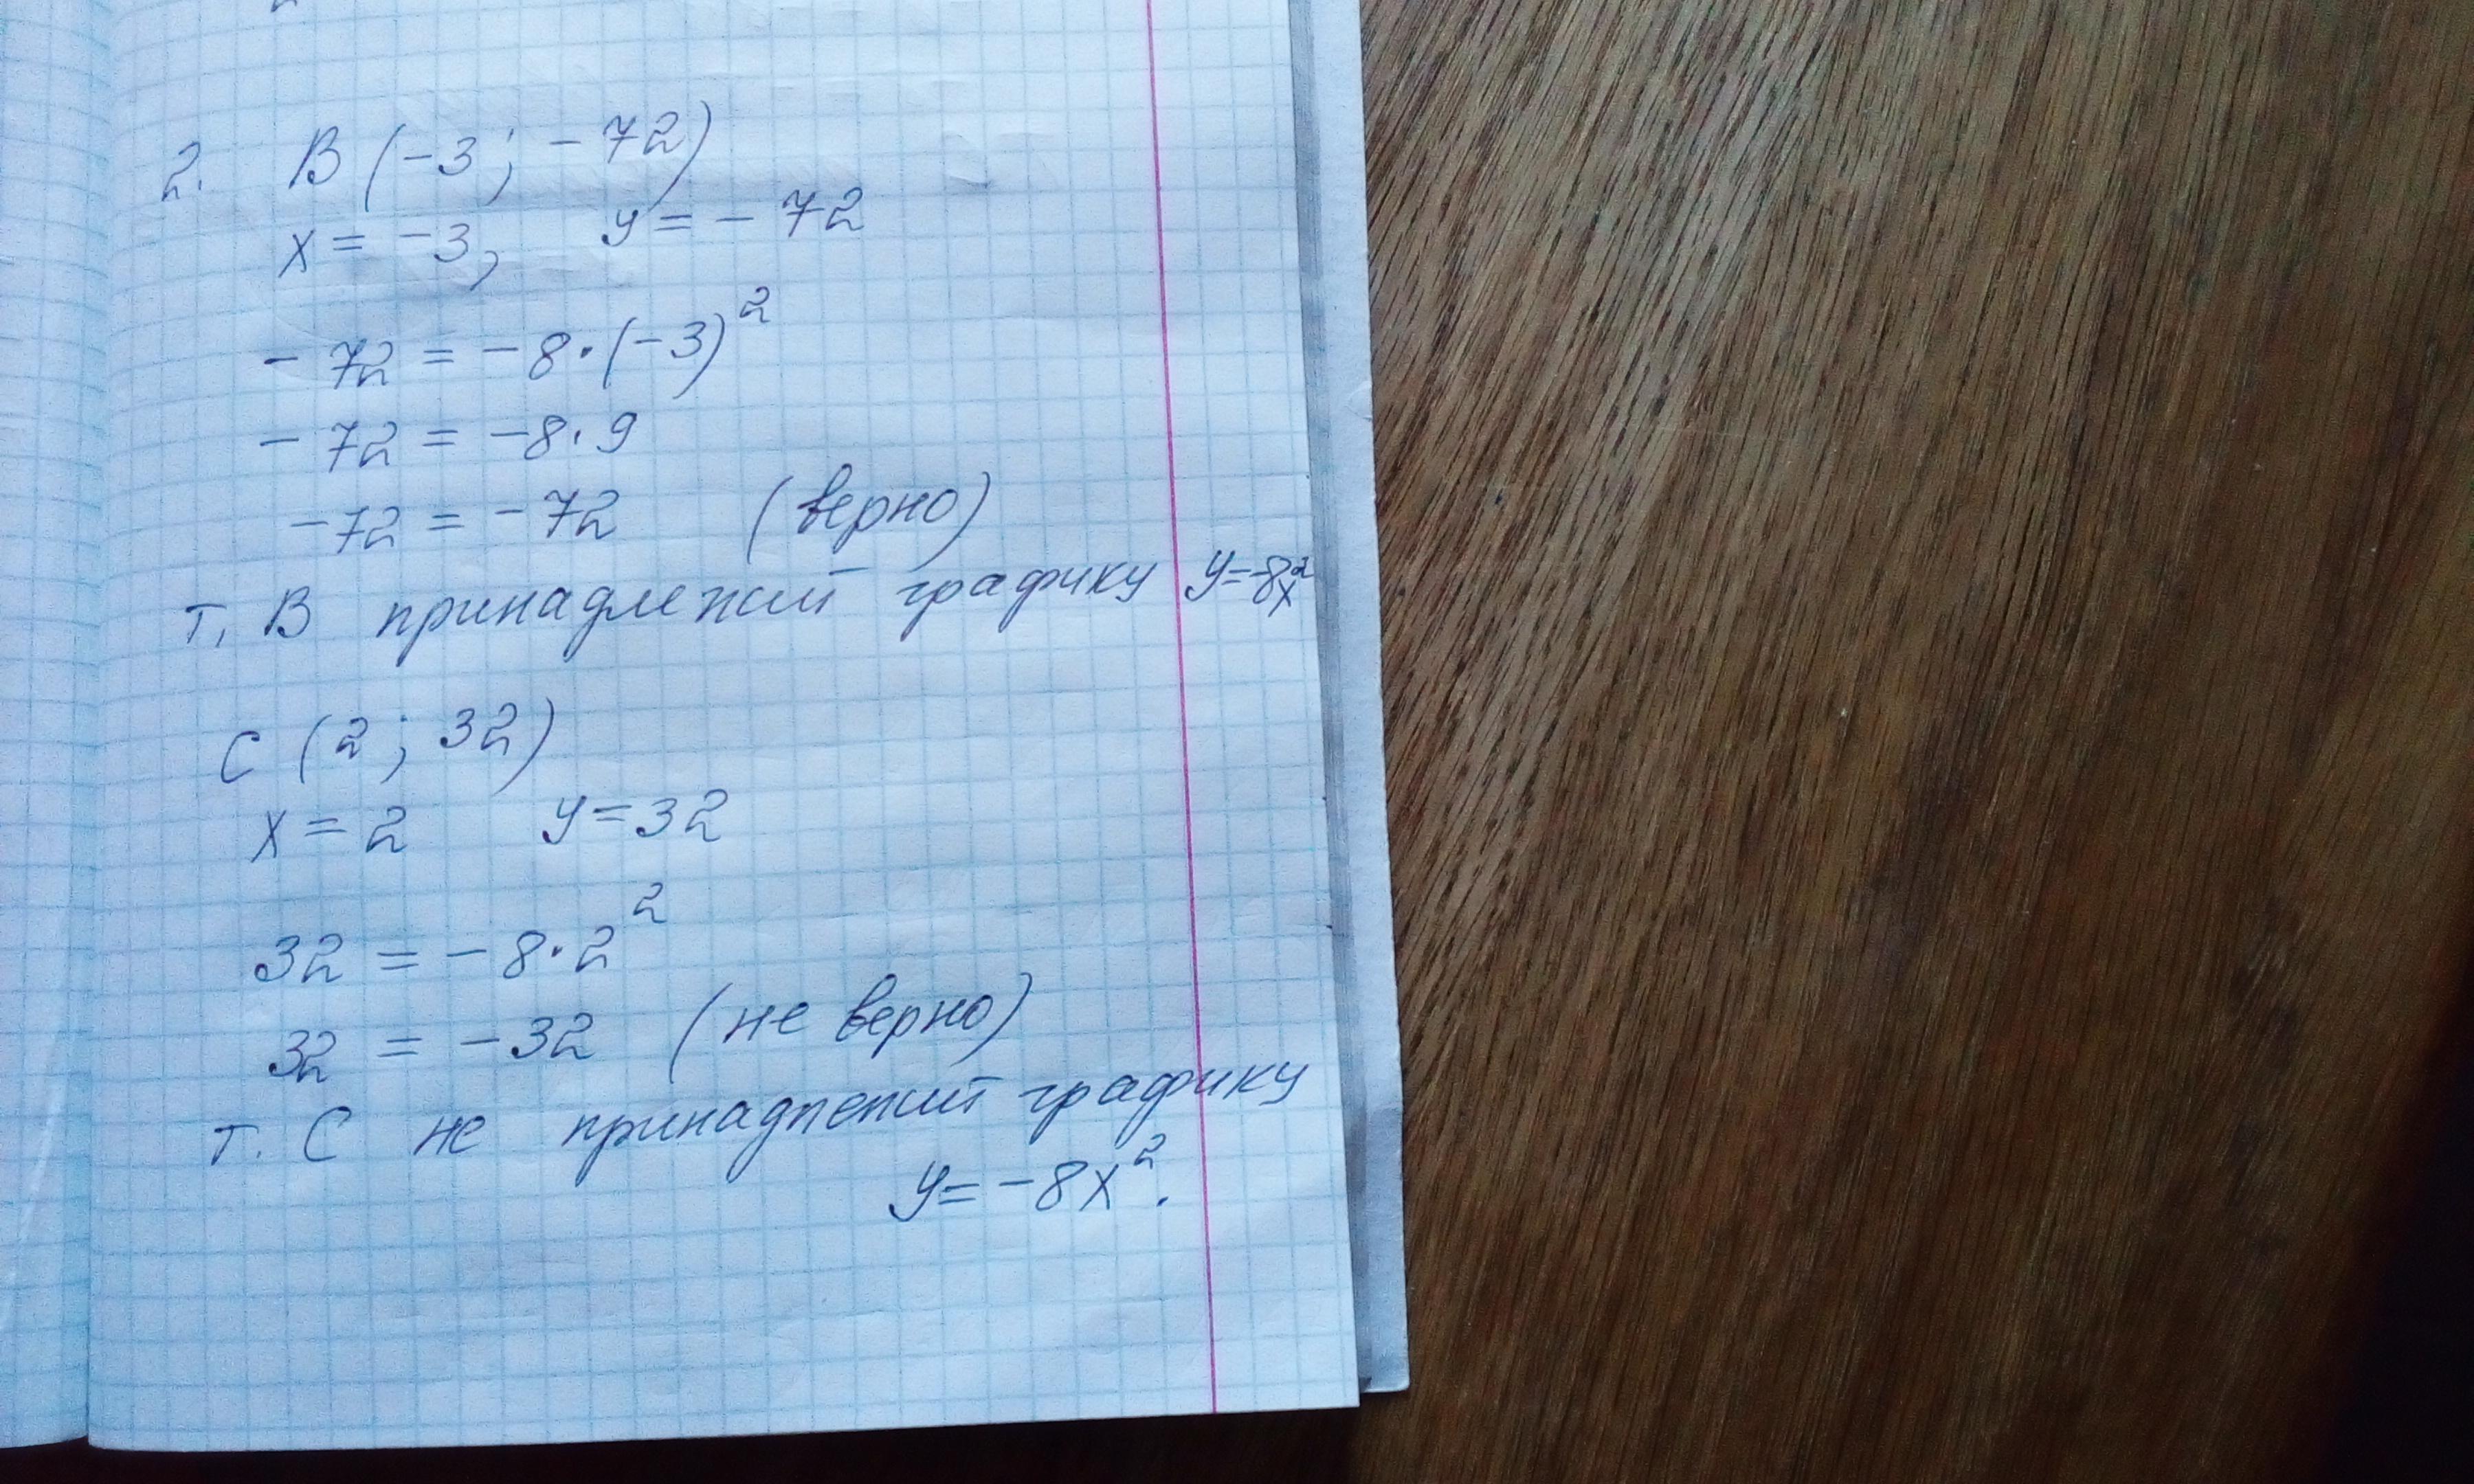 2. В (-3; -72)
x = -3, y = -72
-72 = -8·(-3)²
-72 = -8·9
-72 = -72 (верно)
т. В принадлежит графику y=-8x²
С (2; 32)
x = 2 y = 32
32 = -8·2²
32 = -32 (не верно)
т. С не принадлежит графику
y = -8x².